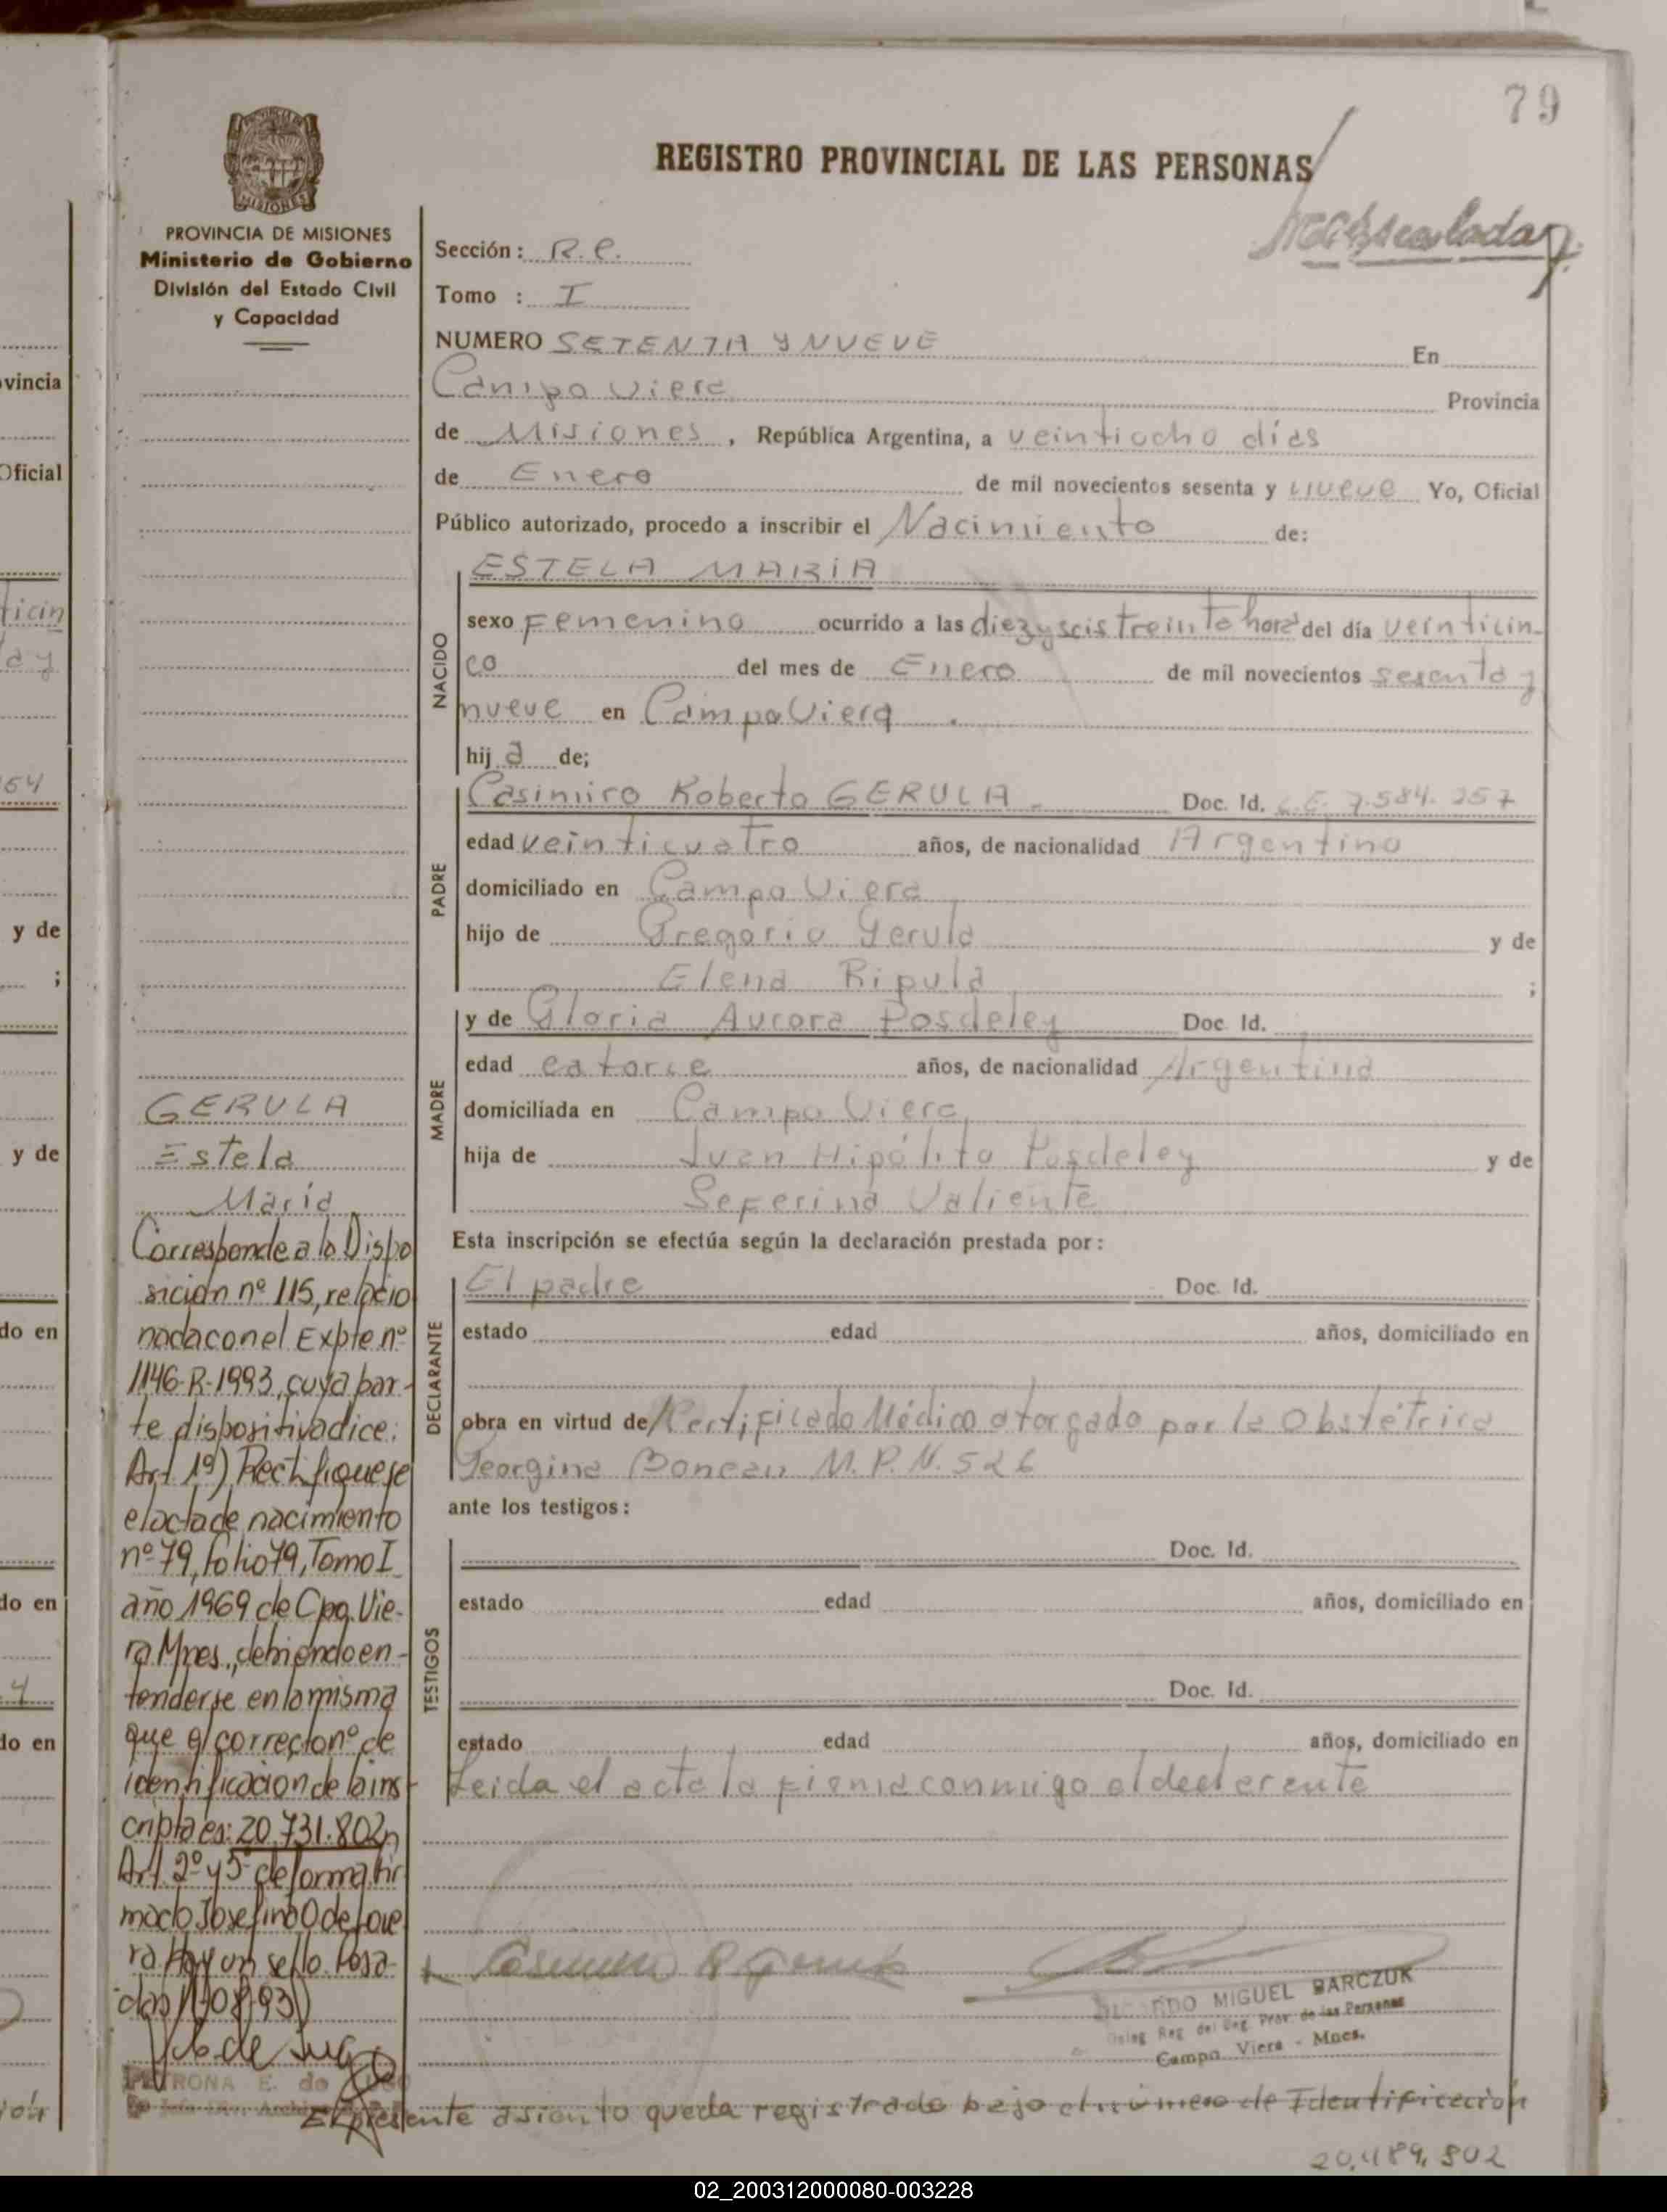 79
REGISTRO PROVINCIAL DE LAS PERSONAS
PROVINCIA DE MISIONES
Ministerio de Gobierno
División del Estado Civil
y Capacidad
Sección: R.C.
Tomo : I
NUMERO SETENTA Y NUEVE En
Campo Viera Provincia
de Misiones, República Argentina, a veintiocho días
de Enero de mil novecientos sesenta y nueve Yo, Oficial
Público autorizado, procedo a inscribir el Nacimiento de:
NACIDO
ESTELA MARIA
sexo Femenino ocurrido a las diezyseis treinta hora del día veinticin-
co del mes de Enero de mil novecientos sesenta y
nueve en Campo Viera.
hija de;
PADRE
Casimiro Roberto GERULA Doc. Id. L.E. 7.584.257
edad veinticuatro años, de nacionalidad Argentino
domiciliado en Campo Viera
hijo de Gregorio Gerula y de
Elena Ripula ;
MADRE
y de Gloria Aurora Posdeley Doc. Id.
edad catorce años, de nacionalidad Argentina
domiciliada en Campo Viera
hija de Juan Hipólito Posdeley y de
Seferina Valiente
Esta inscripción se efectúa según la declaración prestada por:
DECLARANTE
El padre Doc. Id.
estado edad años, domiciliado en
obra en virtud de Certificado Médico otorgado por la Obstétrica
Georgina M.P.N. 526
ante los testigos:
TESTIGOS
Doc. Id.
estado edad años, domiciliado en
Doc. Id.
estado edad años, domiciliado en
Leida el acta la firma conmigo el declarante
RICARDO MIGUEL BARCZUK
Deleg. Reg. del Reg. Prov. de las Personas
Campo Viera - Mnes.
El presente asiento queda registrado bajo el número de Identificación
20.489.802
GERULA
Estela
María
Corresponde a la Dispo
sición nº 115, relacio
nada con el Expte nº
1146-R-1993, cuya par-
te dispositiva dice:
Art 1º) Rectifiquese
el acta de nacimiento
nº 79, folio 79, Tomo I
año 1969 de Cpo. Vie-
ra Mnes., debiendo en-
tenderse en la misma
que el correcto nº de
identificación de la ins-
cripta es: 20.731.802
Art. 2º y 5º de forma, fir
mado Josefina O de
ra Hay un sello Posa-
das 11-08-93)
PETRONA E. de
vincia
Oficial
ticin
y de
;
y de
do en
do en
do en
02_200312000080-003228